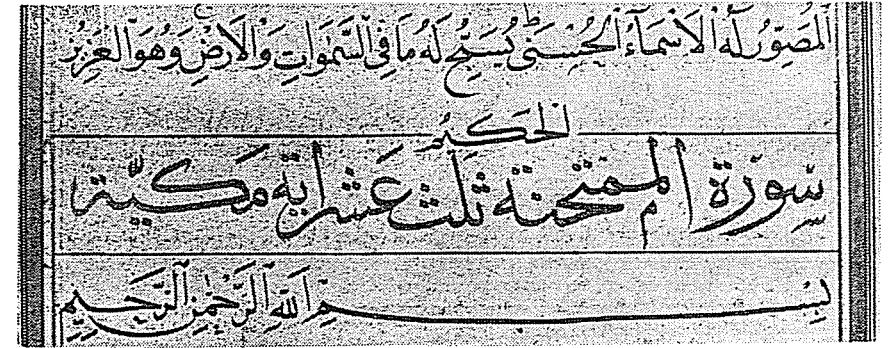 ٱلْمُصَوِّرُ لَهُ ٱلْأَسْمَآءُ ٱلْحُسْنَىٰ يُسَبِّحُ لَهُ مَا فِى ٱلسَّمَٰوَاتِ وَٱلْأَرْضِ وَهُوَ ٱلْعَزِيزُ
ٱلْحَكِيمُ
سورة الممتحنة ثلث عشر اية مكيّة
بِسْمِ ٱللَّهِ ٱلرَّحْمَٰنِ ٱلرَّحِيمِ